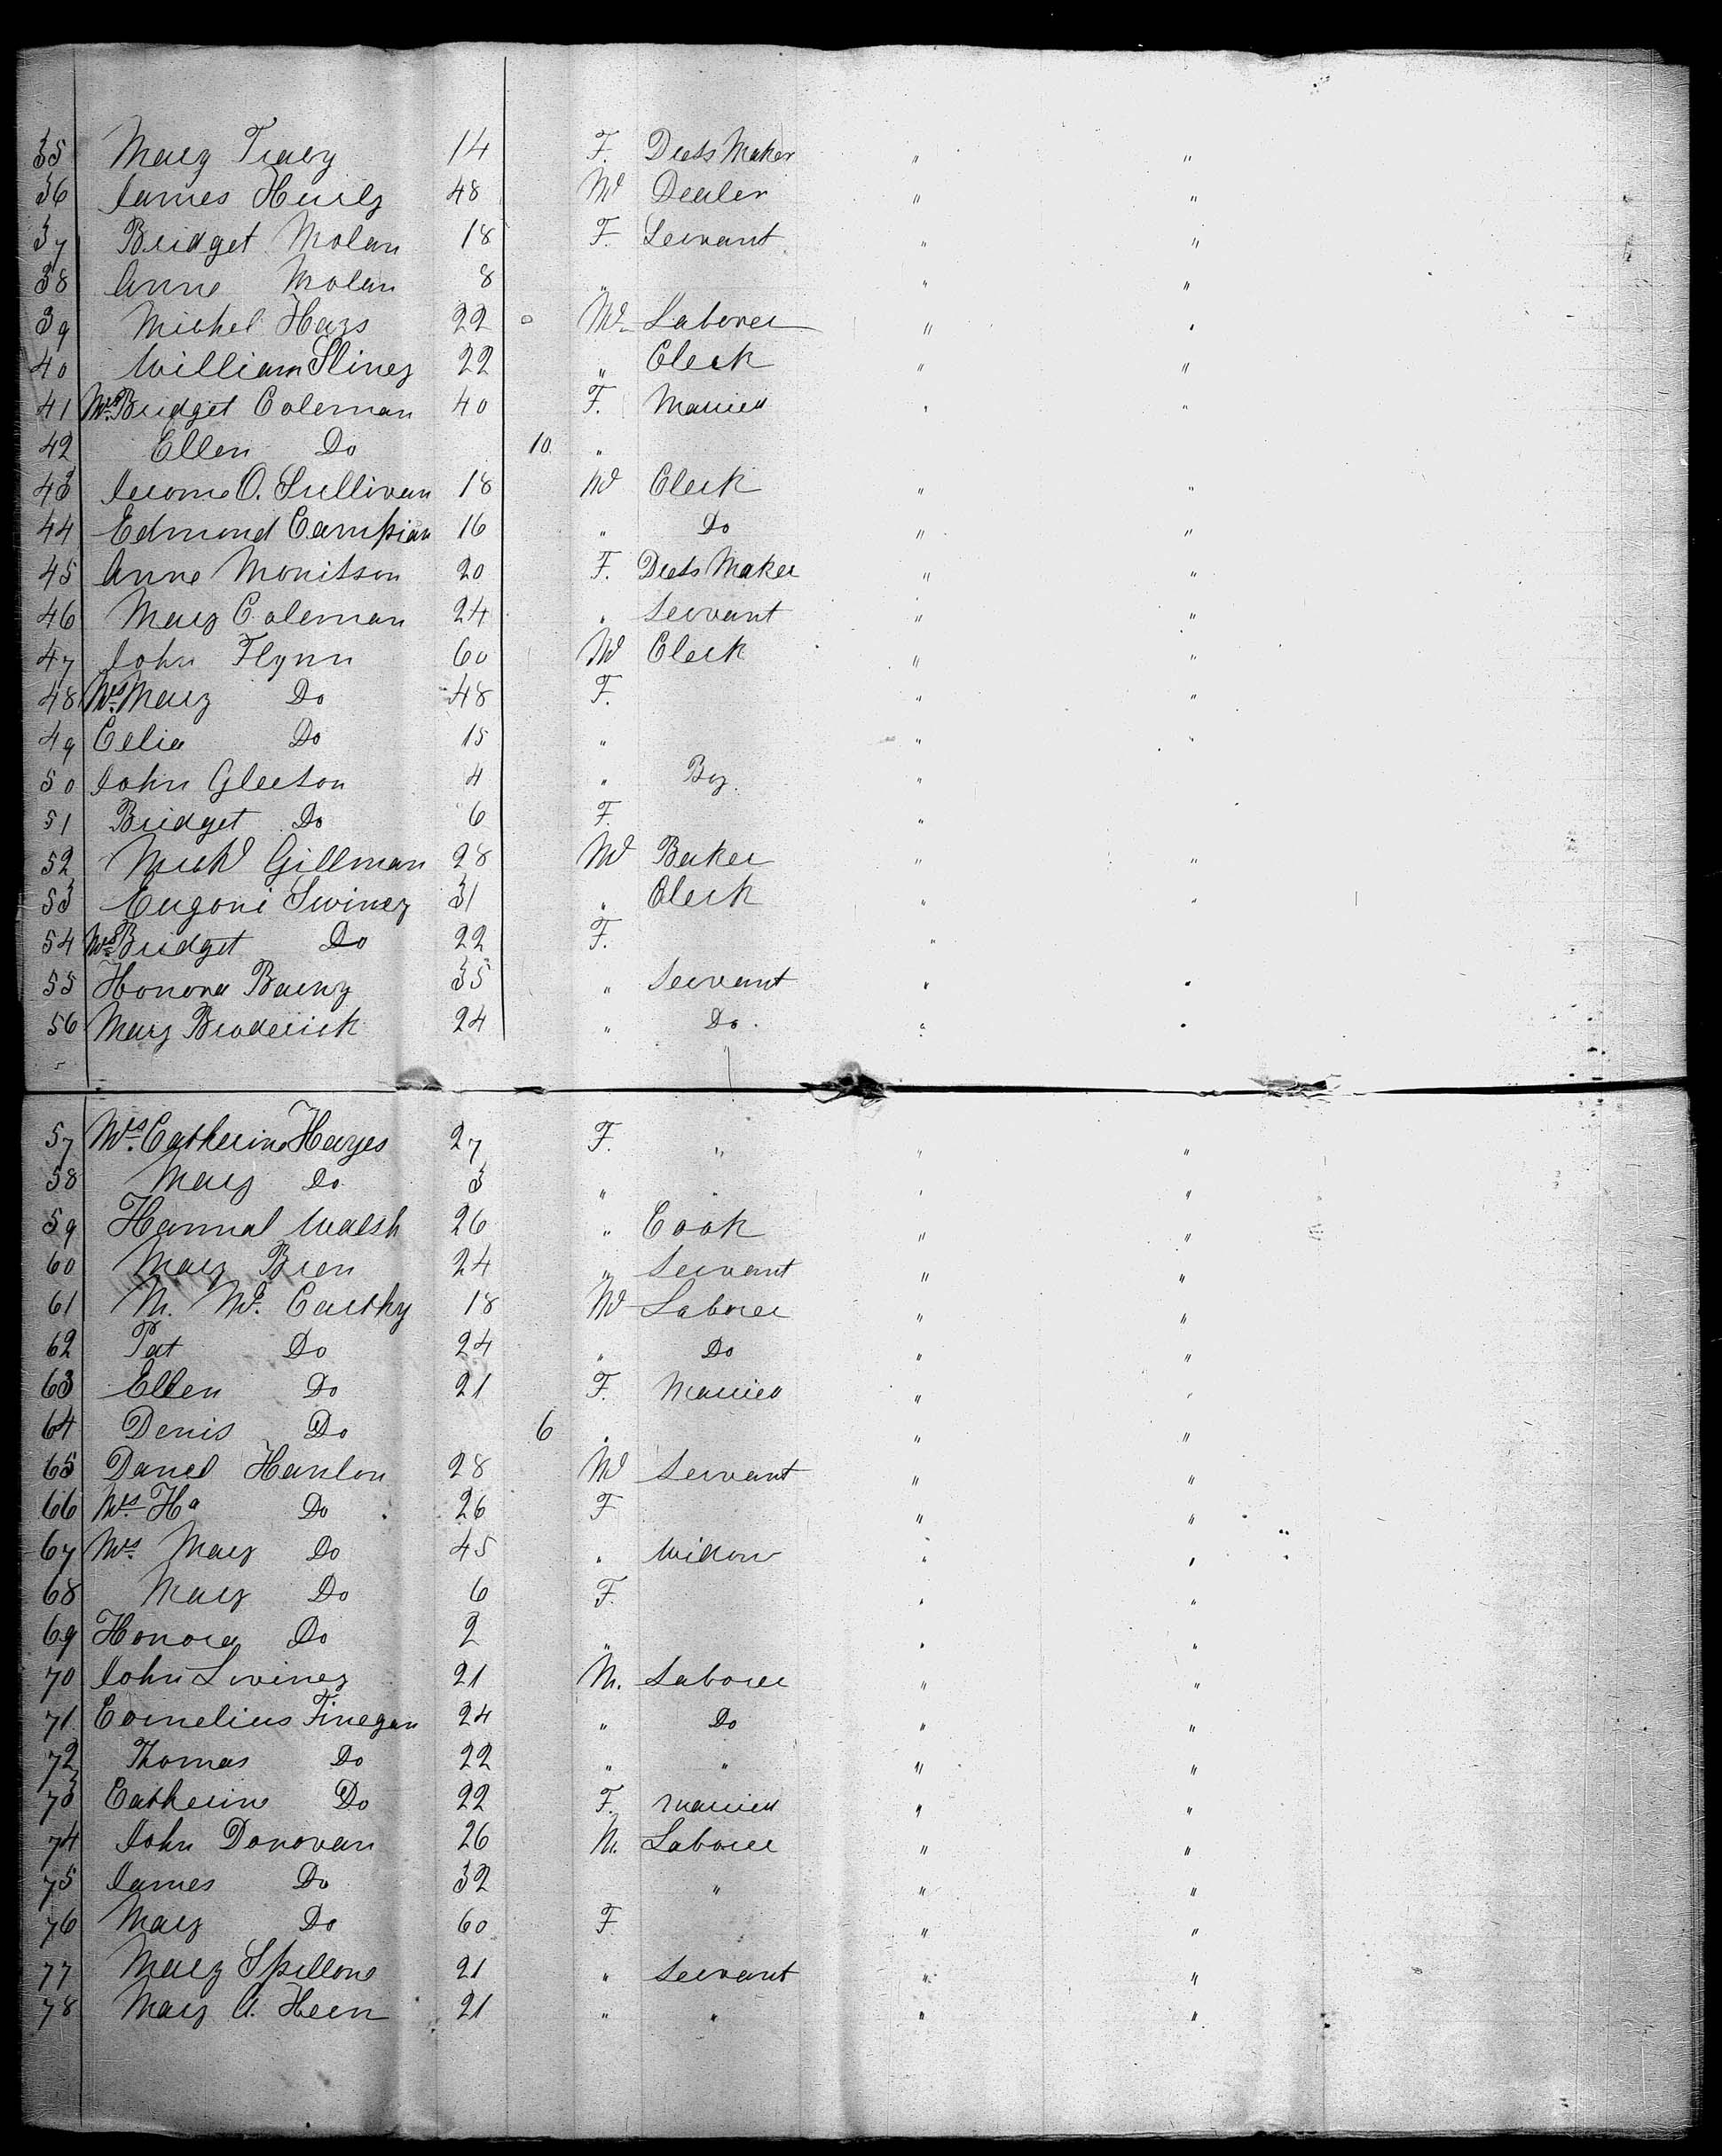 35 Mary Tracy 14 F. Dress Maker " "
36 James Hurly 48 M Dealer " "
37 Bridget Molan 18 F. Servant " "
38 Anne Molan 8 " " "
39 Michel Hays 22 M Laborer " "
40 William Sliney 22 " Clerk " "
41 Mrs Bridget Coleman 40 F. Married " "
42 Ellen Do 10. "
43 Jerome O. Sullivan 18 M Clerk " "
44 Edmond Campian 16 " Do " "
45 Anne Monitson 20 F. Dress Maker " "
46 Mary Coleman 24 " Servant " "
47 John Flynn 60 M Clerk " "
48 Mrs Mary Do 48 F. " "
49 Celia Do 15 " " "
50 John Gleeson 4 " Boy. "
51 Bridget Do 6 F. "
52 Michl Gillman 28 M Baker " "
53 Eugoni Swiney 31 " Clerk " "
54 Mrs Bridget Do 22 F. "
55 Honora Barny 35 " Servant " "
56 Mary Broderick 24 " Do. " "
57 Mrs. Catherine Hayes 27 F. " " "
58 Mary Do 3 " " " "
59 Hannah Walsh 26 " Cook " "
60 Mary Bren 24 " Servant " "
61 M. Mc. Carthy 18 M Laborer " "
62 Pat Do 24 " Do " "
63 Ellen Do 21 F. Married " "
64 Denis Do 6 " " "
65 Daniel Hanlon 28 M Servant " "
66 Mrs Ha Do 26 F " "
67 Mrs. Mary Do 45 " Widow " "
68 Mary Do 6 F. " "
69 Honora Do 2 " " "
70 John Swiney 21 M. Laborer " "
71 Cornelius Finegan 24 " Do " "
72 Thomas Do 22 " " " "
73 Catherine Do 22 F. Married " "
74 John Donovan 26 M. Laborer " "
75 James Do 32 " " "
76 Mary Do 60 F. " "
77 Mary Spillone 21 " Servant " "
78 Mary A. Heen 21 " " " "